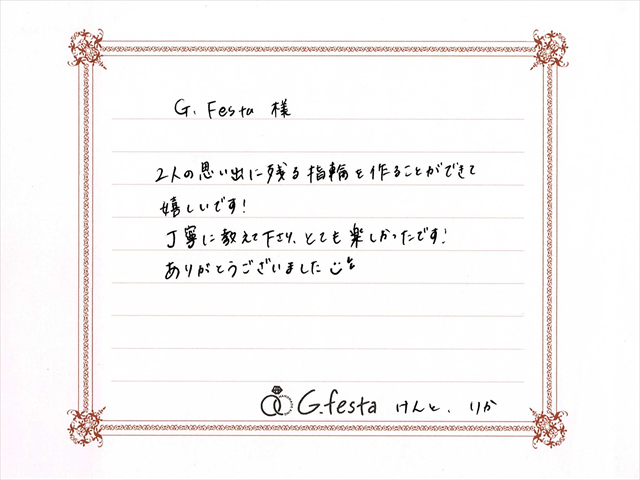 G. Festa 様
2人の思い出に残る指輪を作ることができて
嬉しいです!
丁寧に教えて下さり、とても楽しかったです!
ありがとうございました
G.festa けんと、りか